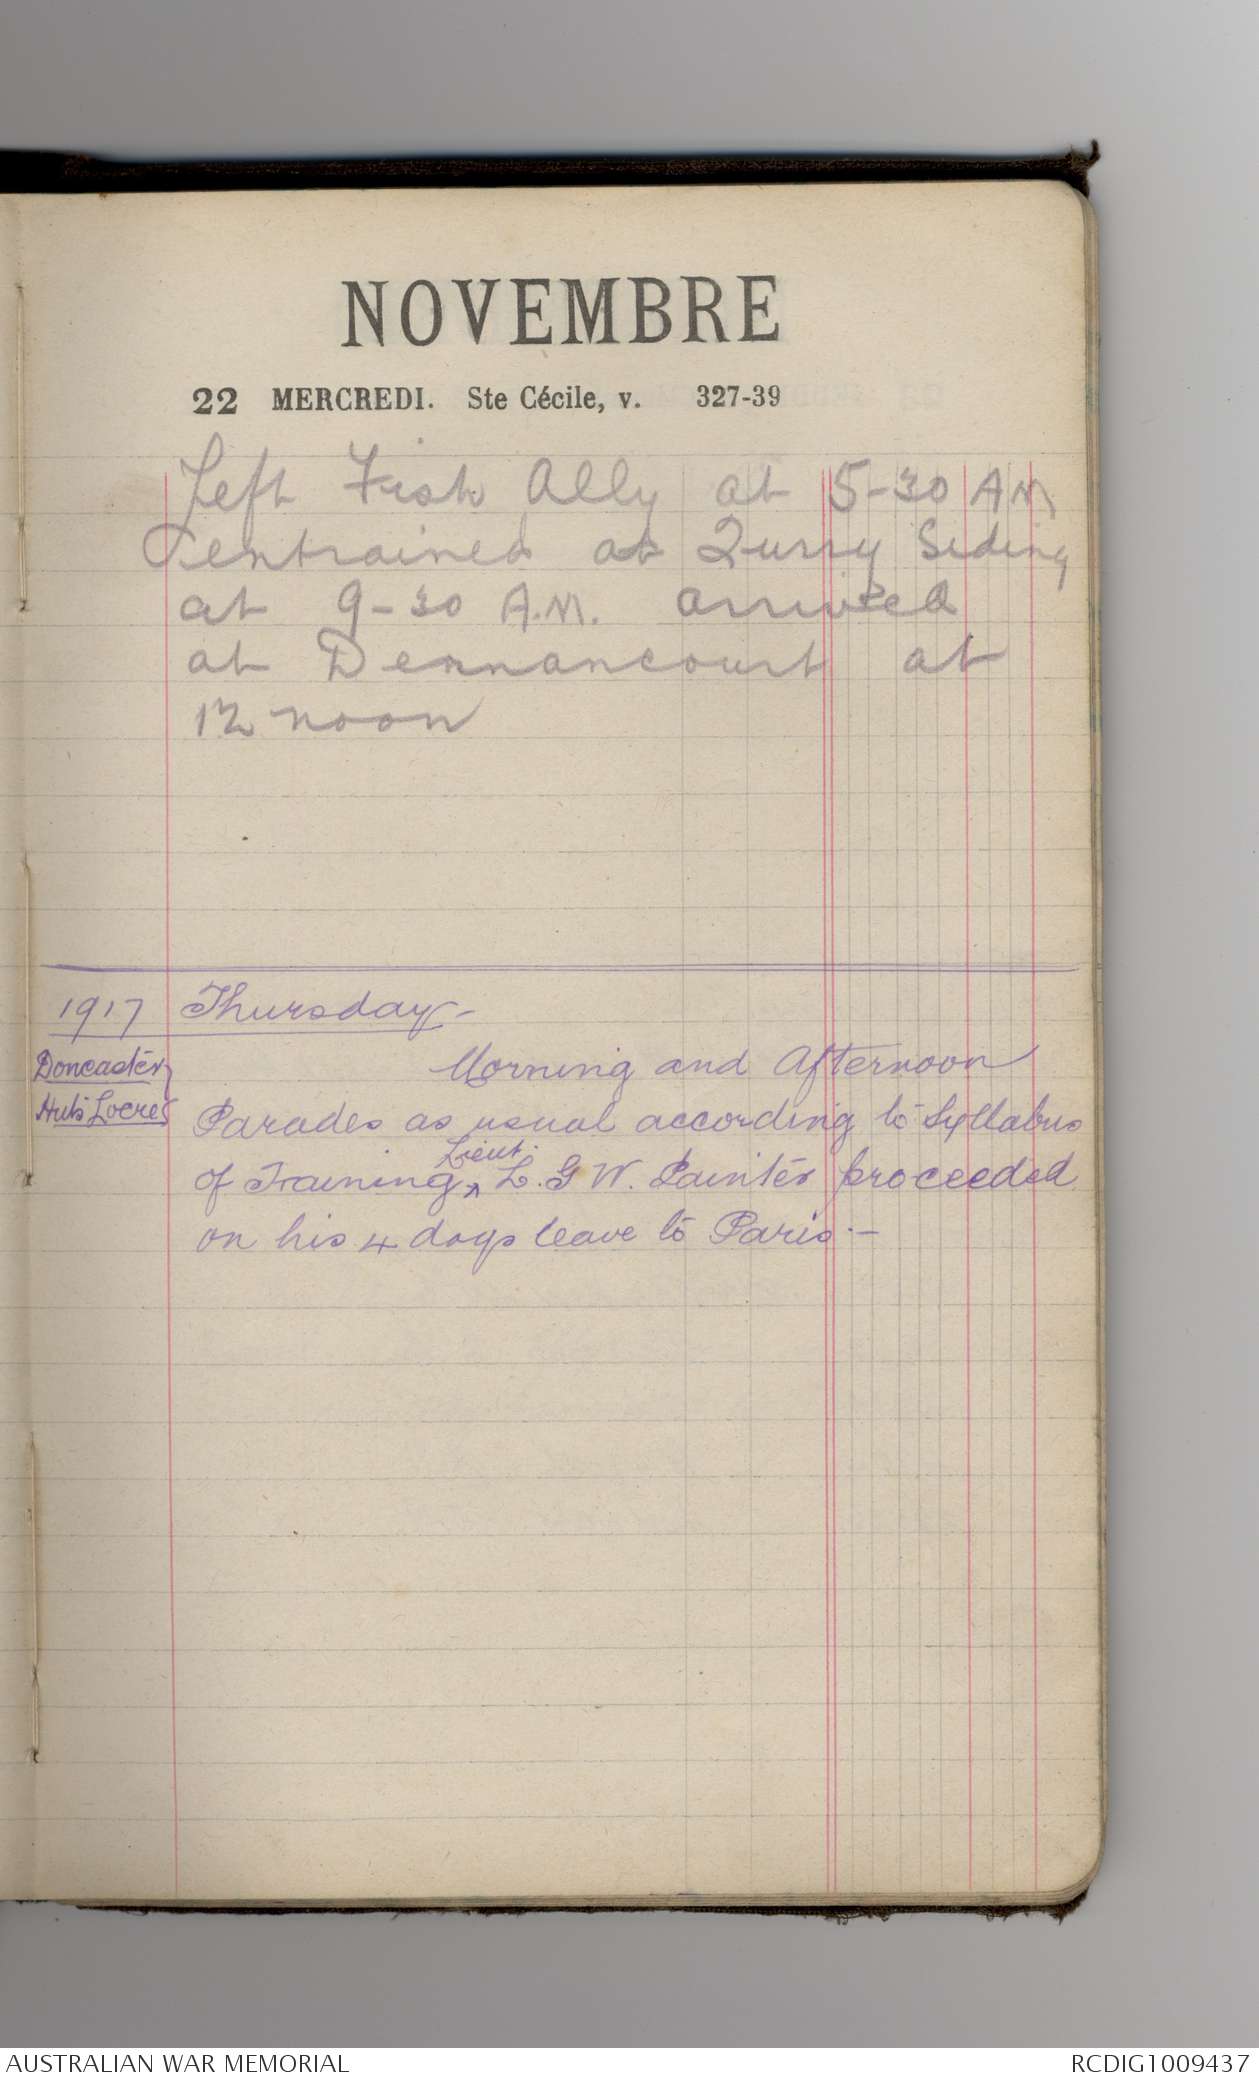 NOVEMBRE
22 MERCREDI. Ste Cécile, v. 327-39
Left Fish Ally at 5-30 A M
entrained at Qurry Siding
at 9-30 A.M. arrived
at Dernancourt at
12 noon
1917 Thursday-
Doncaster
Huts Locre
Morning and Afternoon
Parades as usual according to Syllabus
of Training ^ Lieut. L. G W. Painter proceeded
on his 4 days leave to Paris.-
AUSTRALIAN WAR MEMORIAL
RCDIG1009437